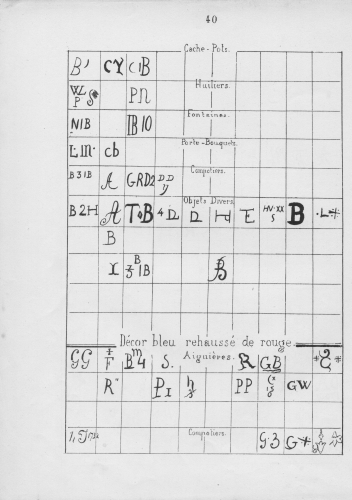 40
Cache-Pots.
B' CY CIB
Huiliers.
WL P S PΠ
Fontaines.
N1B IB 10
Porte-Bouquets.
L.m. cb
Compotiers.
B31B A GRD2 D.D y
Objets Divers.
B2H A ToB 4 D D H E HV·XX S B ·L*
B
X B 3·1B B
Décor bleu rehaussé de rouge
Aiguières.
GG F Bm4 S. R GB
R" PI h PP GW
Compotiers.
G·3 G*